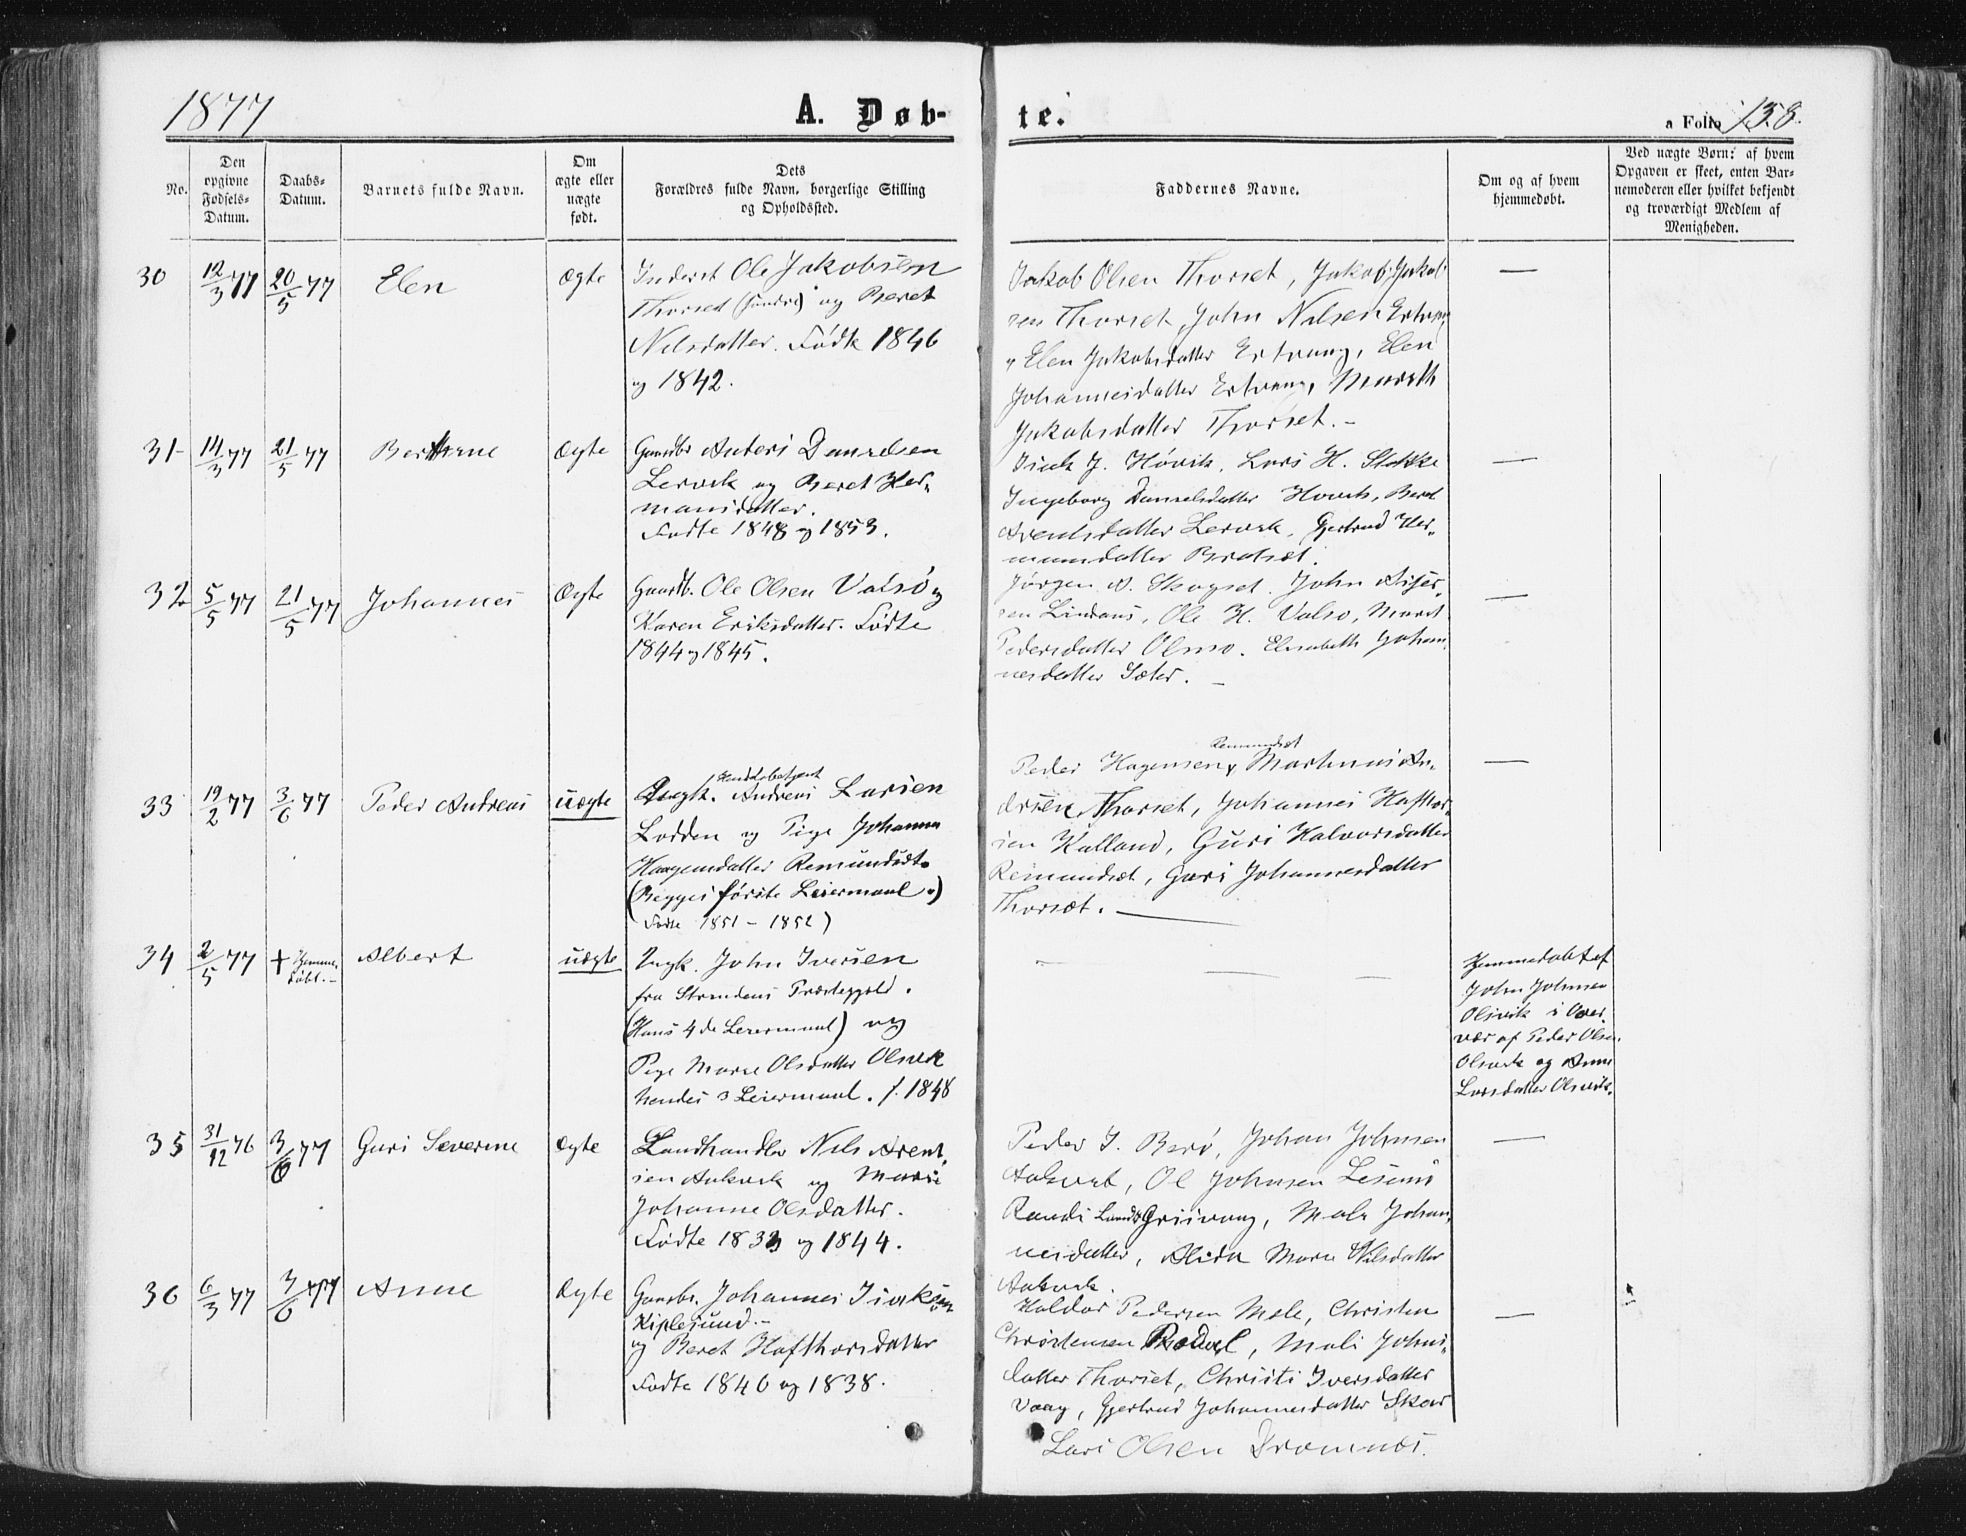 1877
A. Døb-
te.
a Folio 158.
No.
Den opgivne Fødsels-Datum.
Daabs-Datum.
Barnets fulde Navn.
Om ægte eller uægte født.
Dets
Forældres fulde Navn, borgerlige Stilling
og Opholdssted.
Faddernes Navne.
Om og af hvem
hjemmedøbt.
Ved uægte Børn: af hvem
Opgaven er skeet, enten Bar-
nemoderen eller hvilket bekjendt
og troværdigt Medlem af
Menigheden.
30 12/3 77 20/5 77 Elen ægte
Inderst Ole Jakobsen
Thorset og Beret
Nilsdatter. Fødte 1846
og 1842.
Jakob Olsen Thorset, Jakob Jakob-
sen Thorset, John Nilsen
Elen Jakobsdatter Ertvaag, Elen
Johannesdatter Ertvaag, Mareth
Jakobsdatter Thorset. -
—
31 14/3 77 21/5 77 Berthine Ægte
Gaardbr Anders Danielsen
Lervik og Beret Her-
mansdatter.
Fødte 1848 og 1853.
J. Høvik, Lars H. Stokke
Ingeborg Danielsdatter Hovik, Beret
Arentsdatter Lervik, Gjertrud Her-
mansdatter Bratset.
—
32 5/5 77 21/5 77 Johannes Ægte
Gaardb. Ole Olsen Valsø og
Karen Eriksdatter. Fødte
1844 og 1845.
Jørgen A. Skogset. John
Ole H. Valsø, Marit
Pedersdatter Olmo. Elisabeth Johan-
nesdatter Sæter. -
—
33 19/2 77 3/6 77 Peder Andreas uægte
Ungk. Andreas Larsen
Lodden og Pige Johanna
Haagensdatter Remundset.
(Begges første Leiermaal.)
Fødte 1851 - 1852)
Remundset
Peder Hagensen, Martinus An-
dersen Thorset, Johannes Hafthor-
sen Kalland, Guri Halvorsdatter
Remundset, Guri Johannesdatter
Thorset. —
—
34 2/5 77 + Hjemme-
døbt. - Albert uægte
Ungk. John Iversen
fra Strandens Præstegjeld.
(Hans 4de Leiermaal) og
Pige Marie Olsdatter Olsvik
hendes 3 Leiermaal. f. 1848
Hjemmedøbt af
John Johnsen
Olsvik i Over-
vær af Peder Olsen
Olsvik og Anne
Larsdatter Olsvik.
35 31/12 76 3/6 77 Guri Severine ægte
Landhandler Nils Arent-
sen Aakvik og Marie
Johanne Olsdatter.
Fødte 1833 og 1844.
Peder I. Berø, Johan Johnsen
Aakvik, Ol Johnsen
Randi Griivaag, Mali Johan-
nesdatter, Alida Marie Nilsdatter
Aakvik.
—
36 6/3 77 3/6 77 Anne Ægte
Gaardbr. Johannes
Kiplesund. -
og Beret Hafthorsdatter
Fødte 1846 og 1838.
Haldor Pedersen Mele, Christen
Christensen, Mali Johns-
datter Thorset, Christi Iversdatter
Vaag, Gjertrud Johannesdatter Skar
Lars Olsen Dromnes.
—